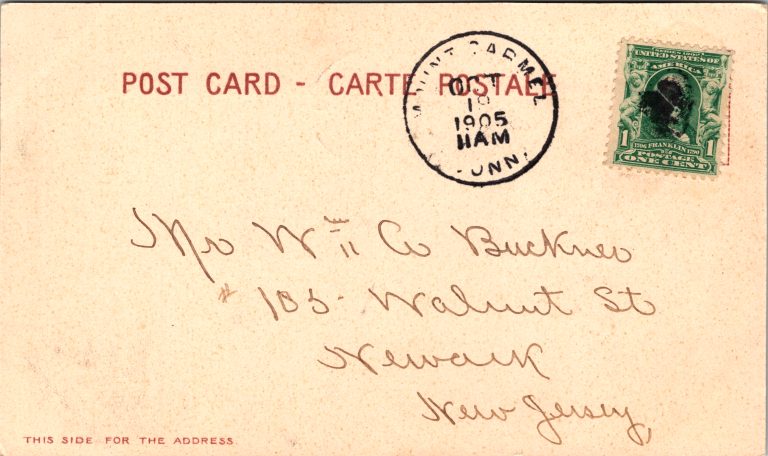 POST CARD - CARTE POSTALE
MOUNT CARMEL
OCT
18
1905
11AM
CONN.
SERIES 1902
UNITED STATES OF
AMERICA
1706 FRANKLIN 1790
1 POSTAGE 1
ONE CENT
Mr Wm
Buckner
# 105 Walnut St
Newark
New Jersey,
THIS SIDE FOR THE ADDRESS.